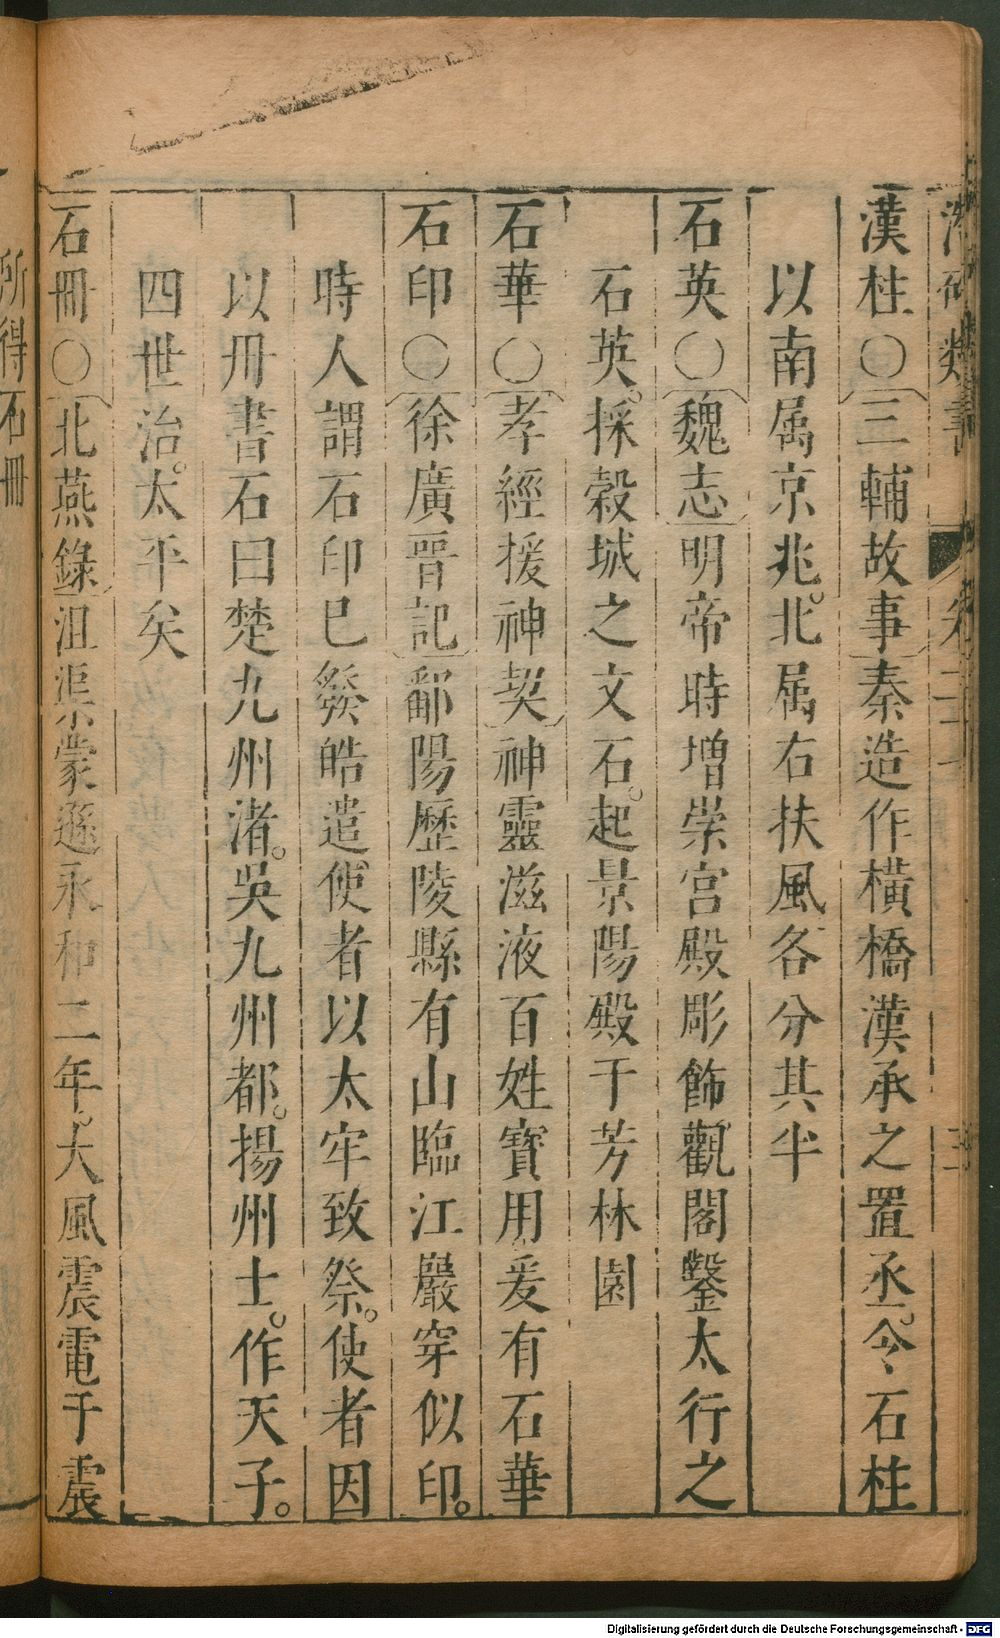 類書 卷二十 二
漢柱○三輔故事秦造作橫橋漢承之置丞。令石柱
以南屬京兆。北屬右扶風各分其半
石英○魏志明帝時增崇宮殿彫飾觀閣鑿太行之
石英。採穀城之文石。起景陽殿于芳林園
石華○孝經援神契神靈滋液百姓寶用爰有石華
石印○徐廣晋記鄱陽歷陵縣有山臨江巖穿似印。
時人謂石印巳發皓遣使者以太牢致祭。使者因
以冊書石曰楚九州渚。吳九州都。揚州士。作天子。
四世治。太平矣
石冊○北燕錄沮渠蒙遜永和二年。大風震電于震
所得石冊
Digitalisierung gefördert durch die Deutsche Forschungsgemeinschaft - DFG